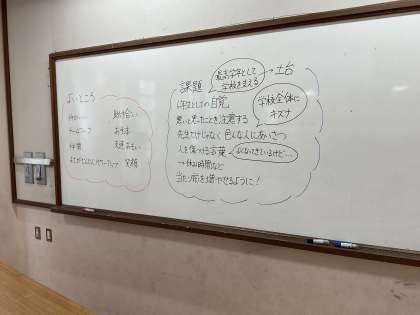 よいところ
助け合い
チームワーク
お手本
仲間
友達 おもい
笑顔
課題
最高学年として
学校を支える
→ 土台
6年生としての自覚
学校全体に
キズナ
悪いと思ったことを注意する
先生だけじゃなく 色んな人にあいさつ
人を傷つける言葉
よくなってきているけど…
→ 休み時間など
当たり前を増やせるように！